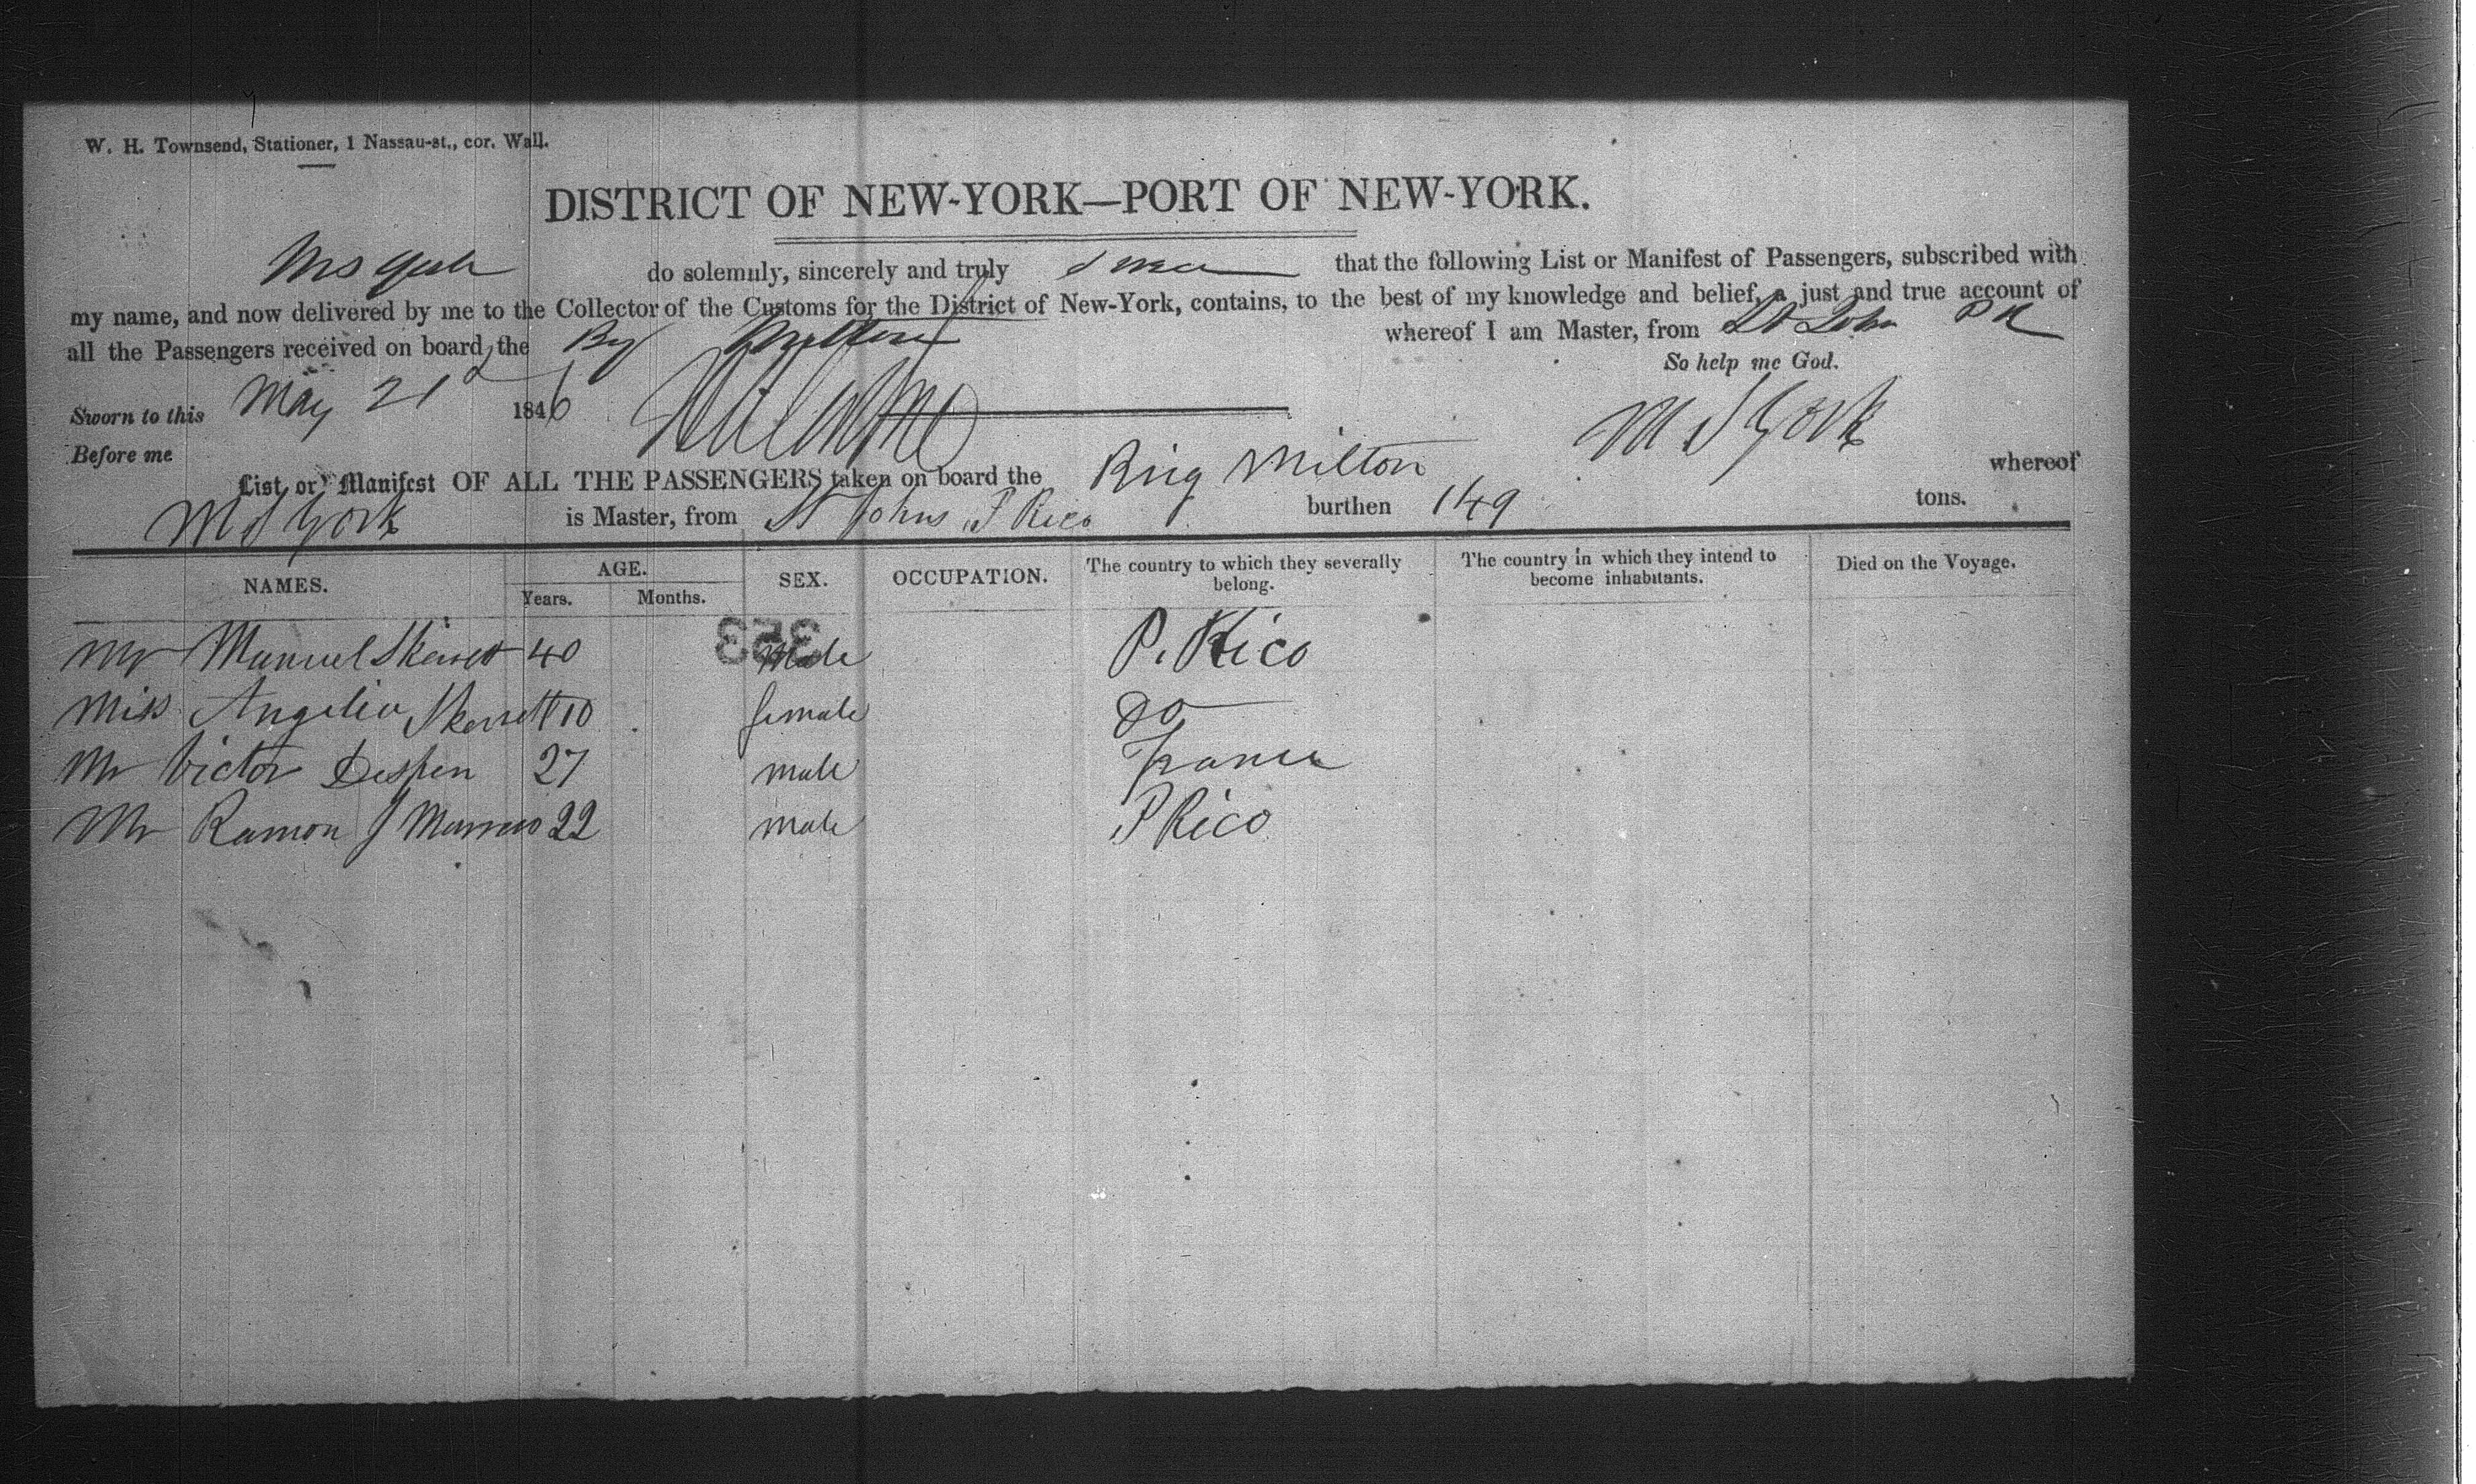 W. H. Townsend, Stationer, 1 Nassau-st., cor. Wall.
DISTRICT OF NEW-YORK—PORT OF NEW-YORK.
M S York do solemnly, sincerely and truly swear that the following List or Manifest of Passengers, subscribed with
my name, and now delivered by me to the Collector of the Customs for the District of New-York, contains, to the best of my knowledge and belief, a just and true account of
all the Passengers received on board the Bg Milton whereof I am Master, from St John P R
So help me God.
Sworn to this May 21 1846
M S York
Before me
List or Manifest OF ALL THE PASSENGERS taken on board the Brig Milton whereof
M S York is Master, from St Johns P Rico burthen 149 tons.
NAMES. AGE. SEX. OCCUPATION. The country to which they severally belong. The country in which they intend to become inhabitants. Died on the Voyage.
Years. Months.
353
Mr Manuel Skerrett 40 Male P. Rico
Miss Angelia Skerrett 10 female Do
Mr Victor 27 male France
Mr Ramon J 22 male P Rico